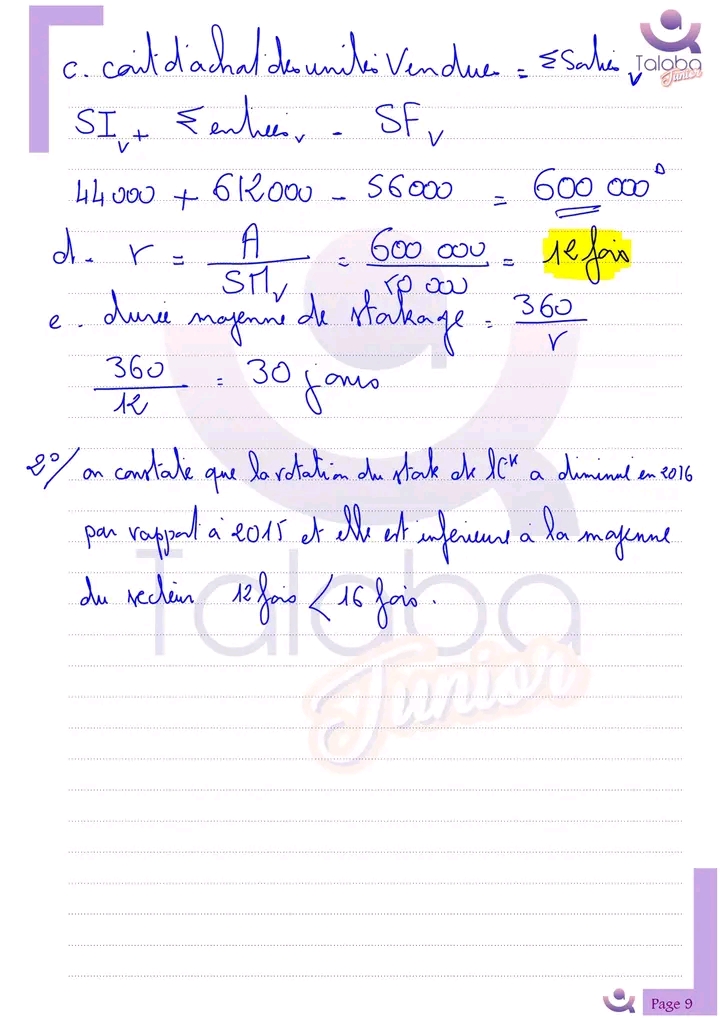 Talaba
Junior
c. coût d'achat des unités vendues = Σ Sorties v
SI v + Σ entrées v - SF v
44000 + 612000 - 56000 = 600 000 D
d. r = A / SM v = 600 000 / 50 000 = 12 fois
e. durée moyenne de stockage = 360 / r
360 / 12 = 30 jours
2°/ on constate que la rotation du stock de l' a diminué en 2016
par rapport à 2015 et elle est inférieure à la moyenne
du secteur 12 fois < 16 fois.
Talaba
Junior
Page 9